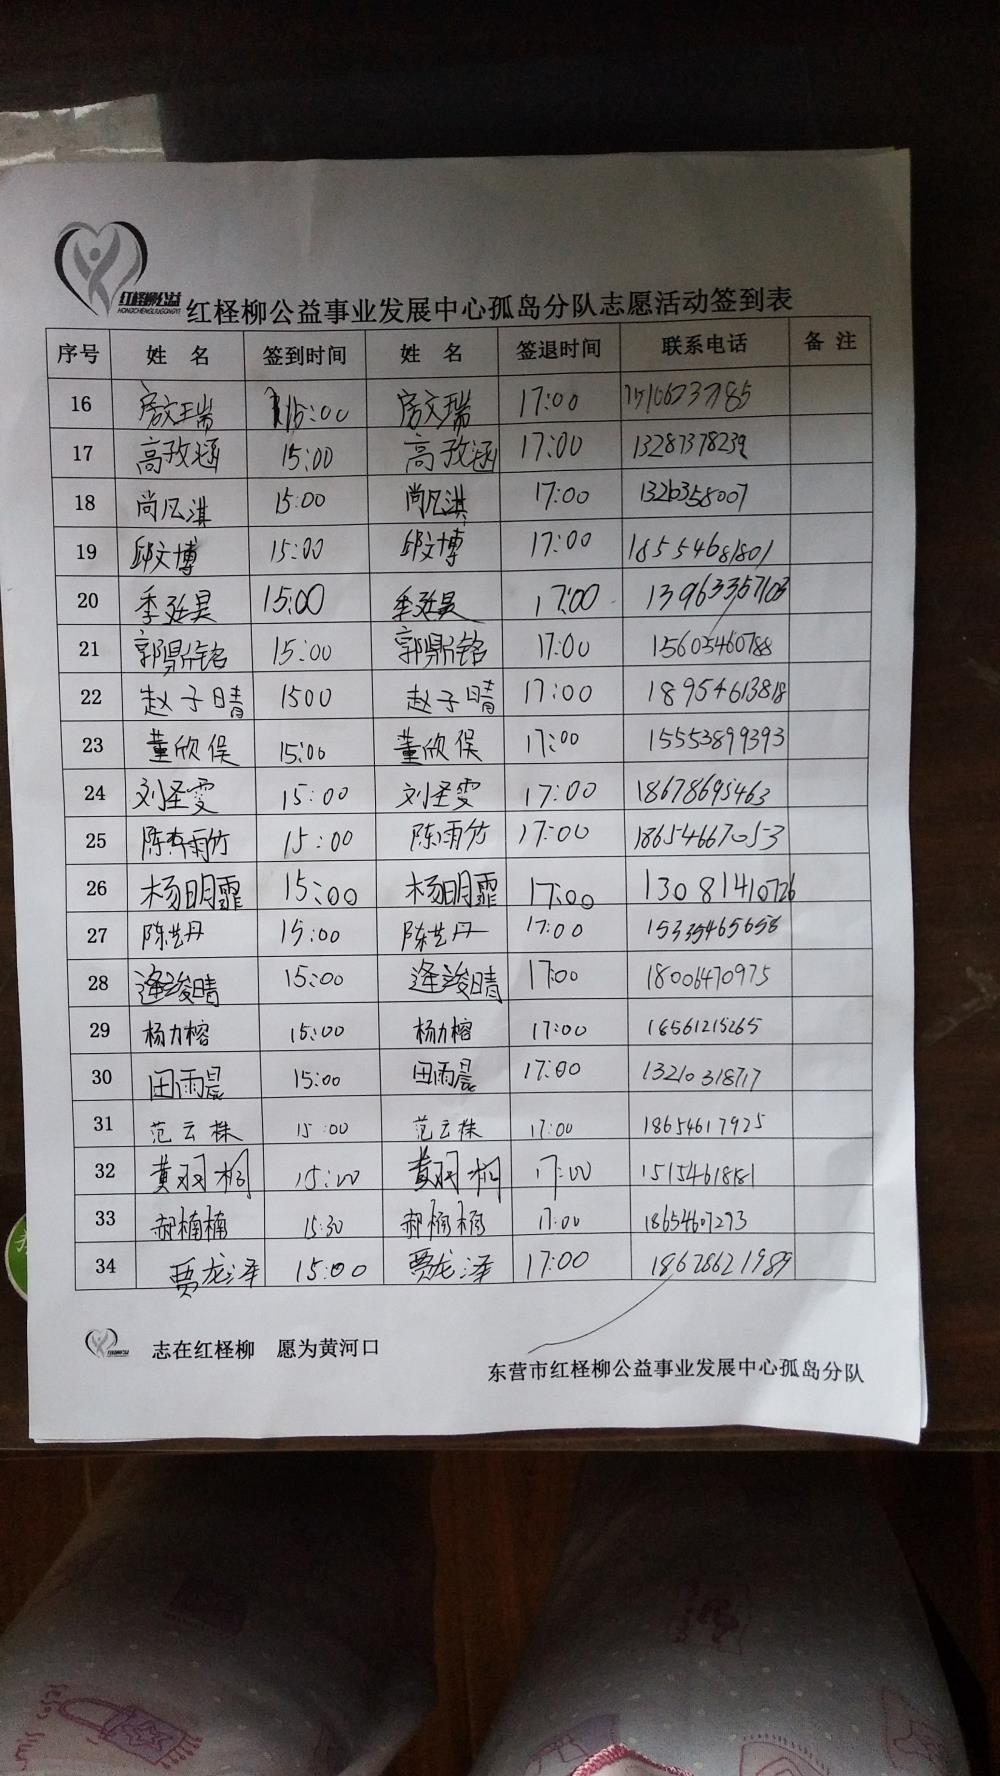 红柽柳公益
HONGCHENGLIUGONGYI
红柽柳公益事业发展中心孤岛分队志愿活动签到表
序号 姓名 签到时间 姓名 签退时间 联系电话 备注
16 房文瑞 15:00 房文瑞 17:00
17 高孜涵 15:00 高孜涵 17:00 13287378239
18 尚凡淇 15:00 尚凡淇 17:00 1326358007
19 邱文博 15:00 邱文博 17:00 18554681801
20 季延昊 15:00 季延昊 17:00 13963357103
21 郭鼎铭 15:00 郭鼎铭 17:00 15605460788
22 赵子晴 1500 赵子晴 17:00 18954613818
23 董欣俣 15:00 董欣俣 17:00 15553899393
24 刘圣雯 15:00 刘圣雯 17:00 18678695463
25 陈雨竹 15:00 陈雨竹 17:00 18654667053
26 杨明霏 15:00 杨明霏 17:00 13081410726
27 陈艺丹 15:00 陈艺丹 17:00 15335465656
28 逄浚晴 15:00 逄浚晴 17:00 18006470975
29 杨力榕 15:00 杨力榕 17:00 18561215265
30 田雨晨 15:00 田雨晨 17:00 13210318717
31 范云株 15:00 范云株 17:00 18654617925
32 黄羽桐 15:00 黄羽桐 17:00 15154618181
33 郝楠楠 15:30 郝楠楠 17:00 18654607293
34 贾龙泽 15:00 贾龙泽 17:00 18678621989
志在红柽柳 愿为黄河口
东营市红柽柳公益事业发展中心孤岛分队